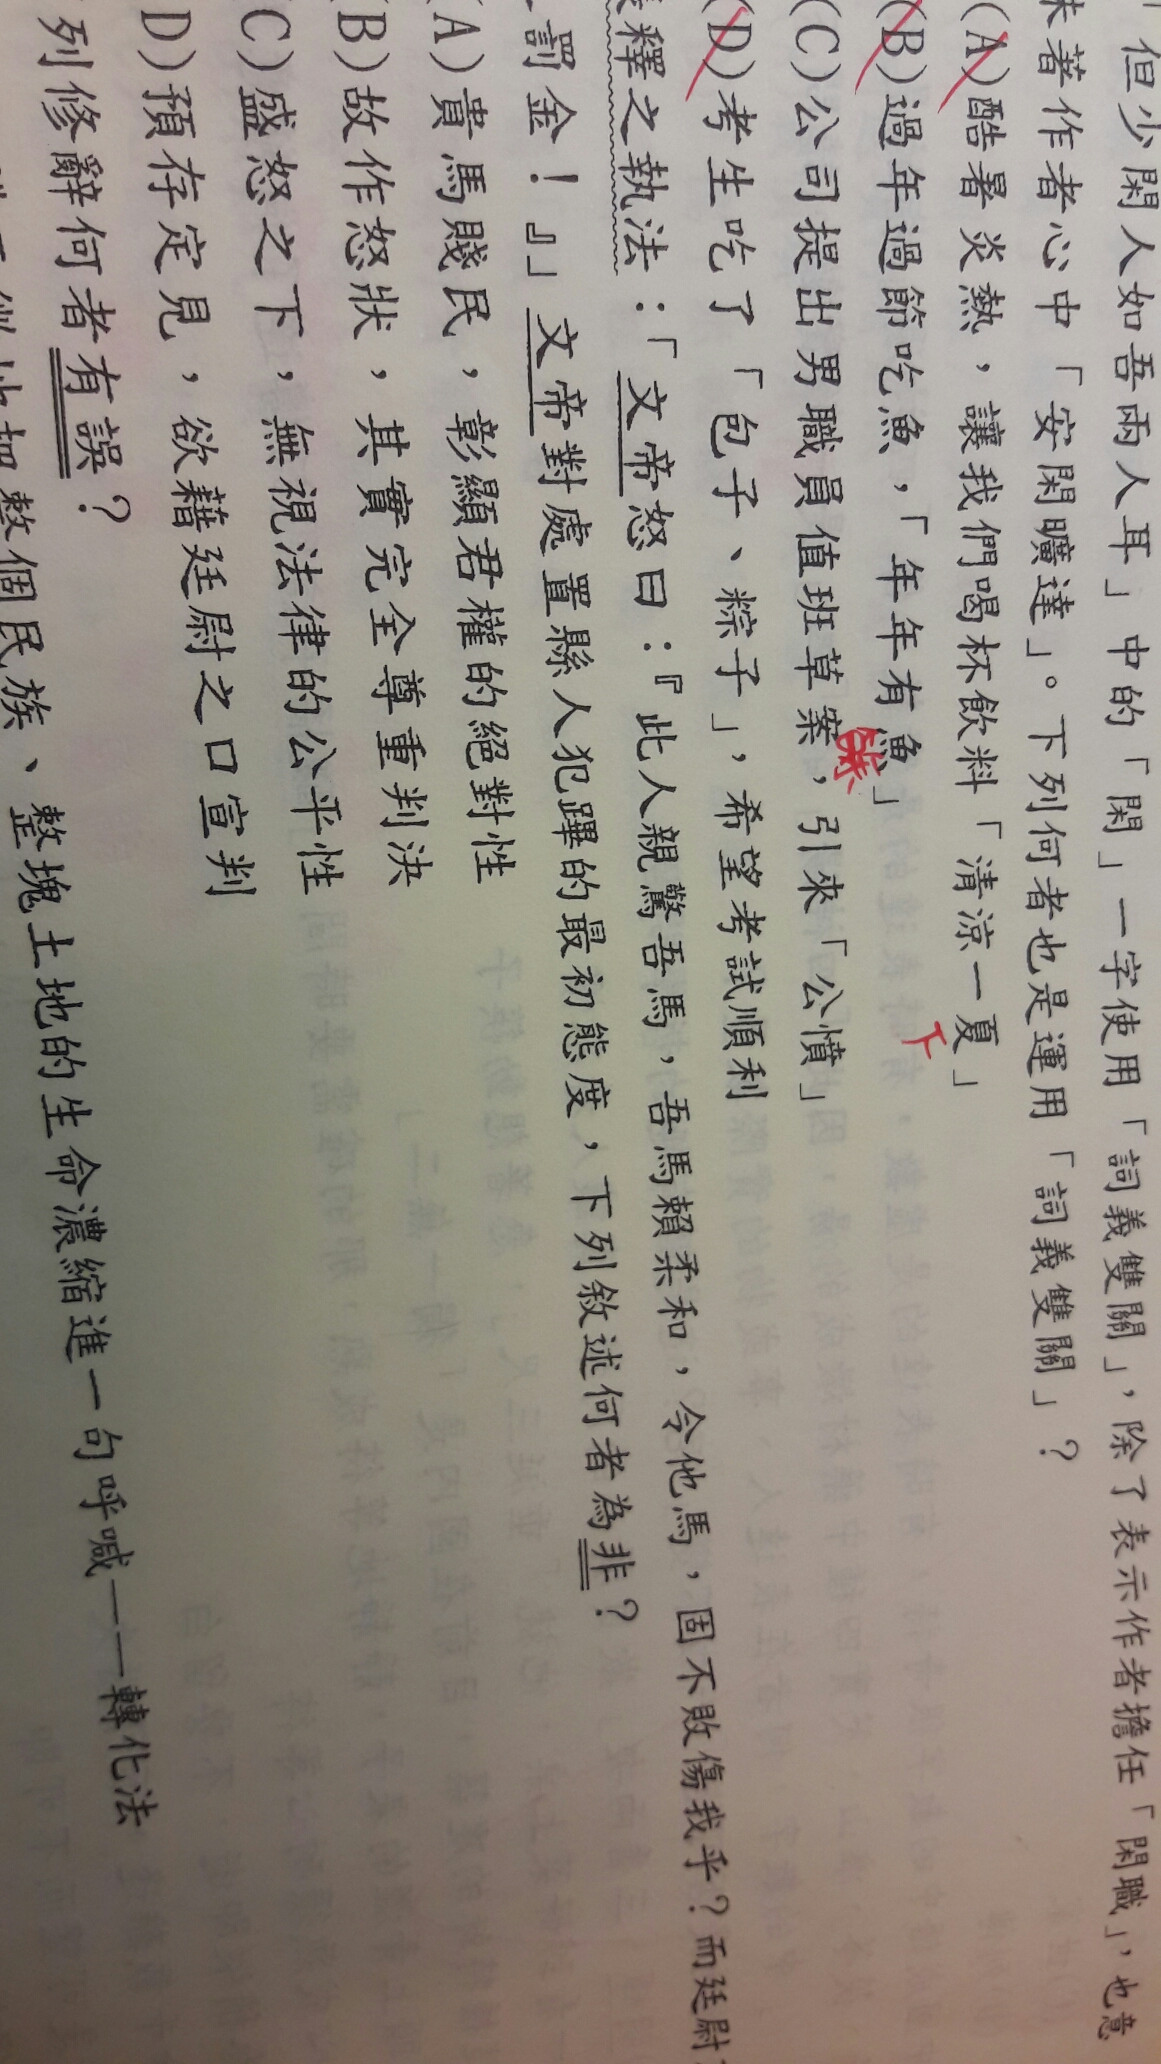 「但少閑人如吾兩人耳」中的「閑」一字使用「詞義雙關」，除了表示作者擔任「閑職」，也意
味著作者心中「安閑曠達」。下列何者也是運用「詞義雙關」？
(A)酷暑炎熱，讓我們喝杯飲料「清涼一夏」
下
(B)過年過節吃魚，「年年有魚」
餘
(C)公司提出男職員值班草案，引來「公憤」
(D)考生吃了「包子、粽子」，希望考試順利
釋之執法：「文帝怒曰：『此人親驚吾馬，吾馬賴柔和，令他馬，固不敗傷我乎？而廷尉
罰金！』」文帝對處置縣人犯蹕的最初態度，下列敘述何者為非？
(A)貴馬賤民，彰顯君權的絕對性
(B)故作怒狀，其實完全尊重判決
(C)盛怒之下，無視法律的公平性
(D)預存定見，欲藉廷尉之口宣判
列修辭何者有誤？
把整個民族、整塊土地的生命濃縮進一句呼喊——轉化法